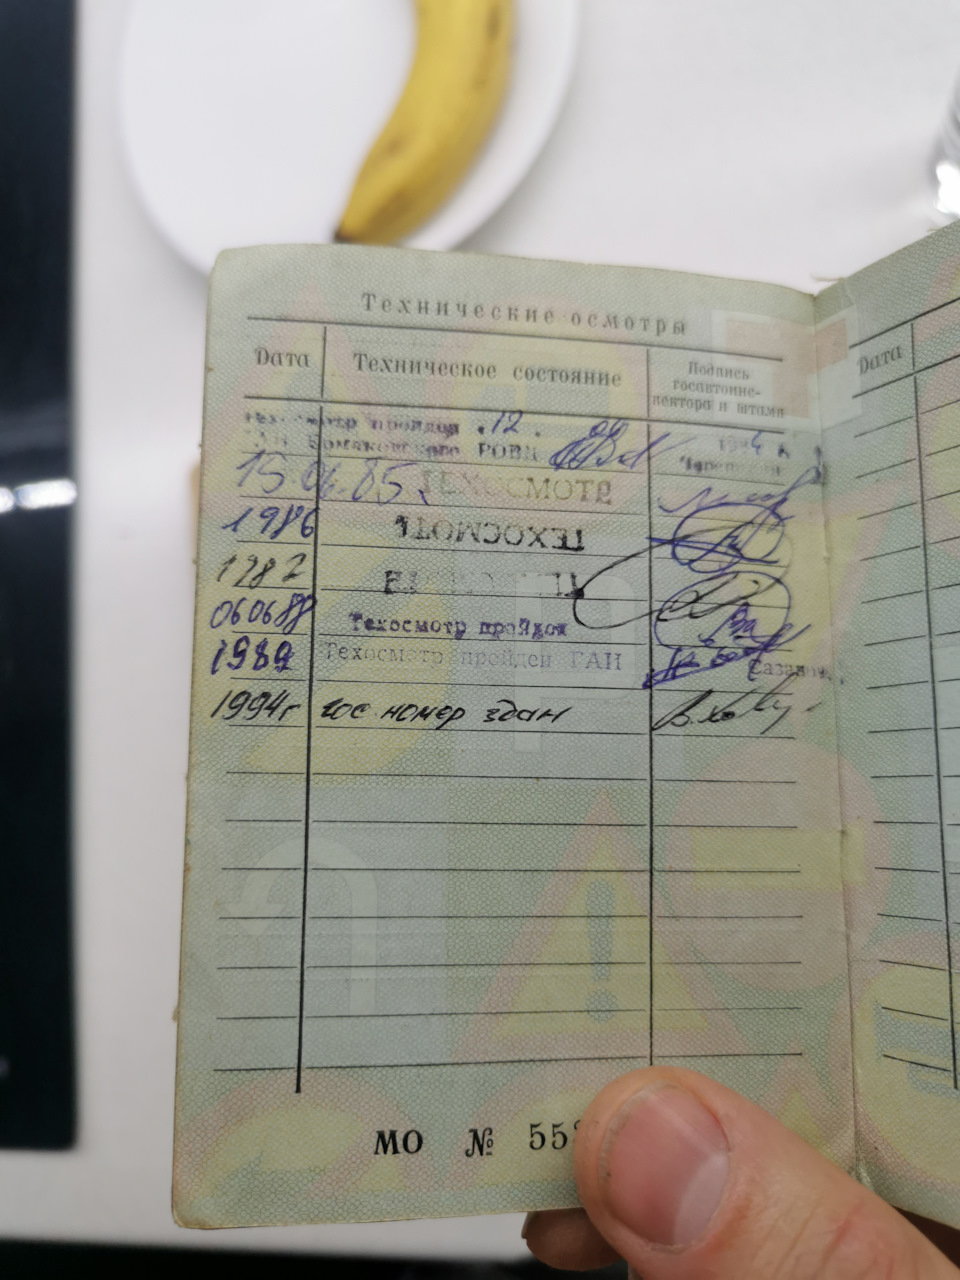 Технические осмотры
Дата Техническое состояние Подпись госавтоинс- Дата
пектора и штамп
техосмотр пройден .12.
РОВД
15.06.85. ТЕХОСМОТР
1986 ТЕХОСМОТР
1987
060688 Техосмотр пройден
1989 Техосмотр пройден ГАИ
1994г гос номер здан
МО № 55